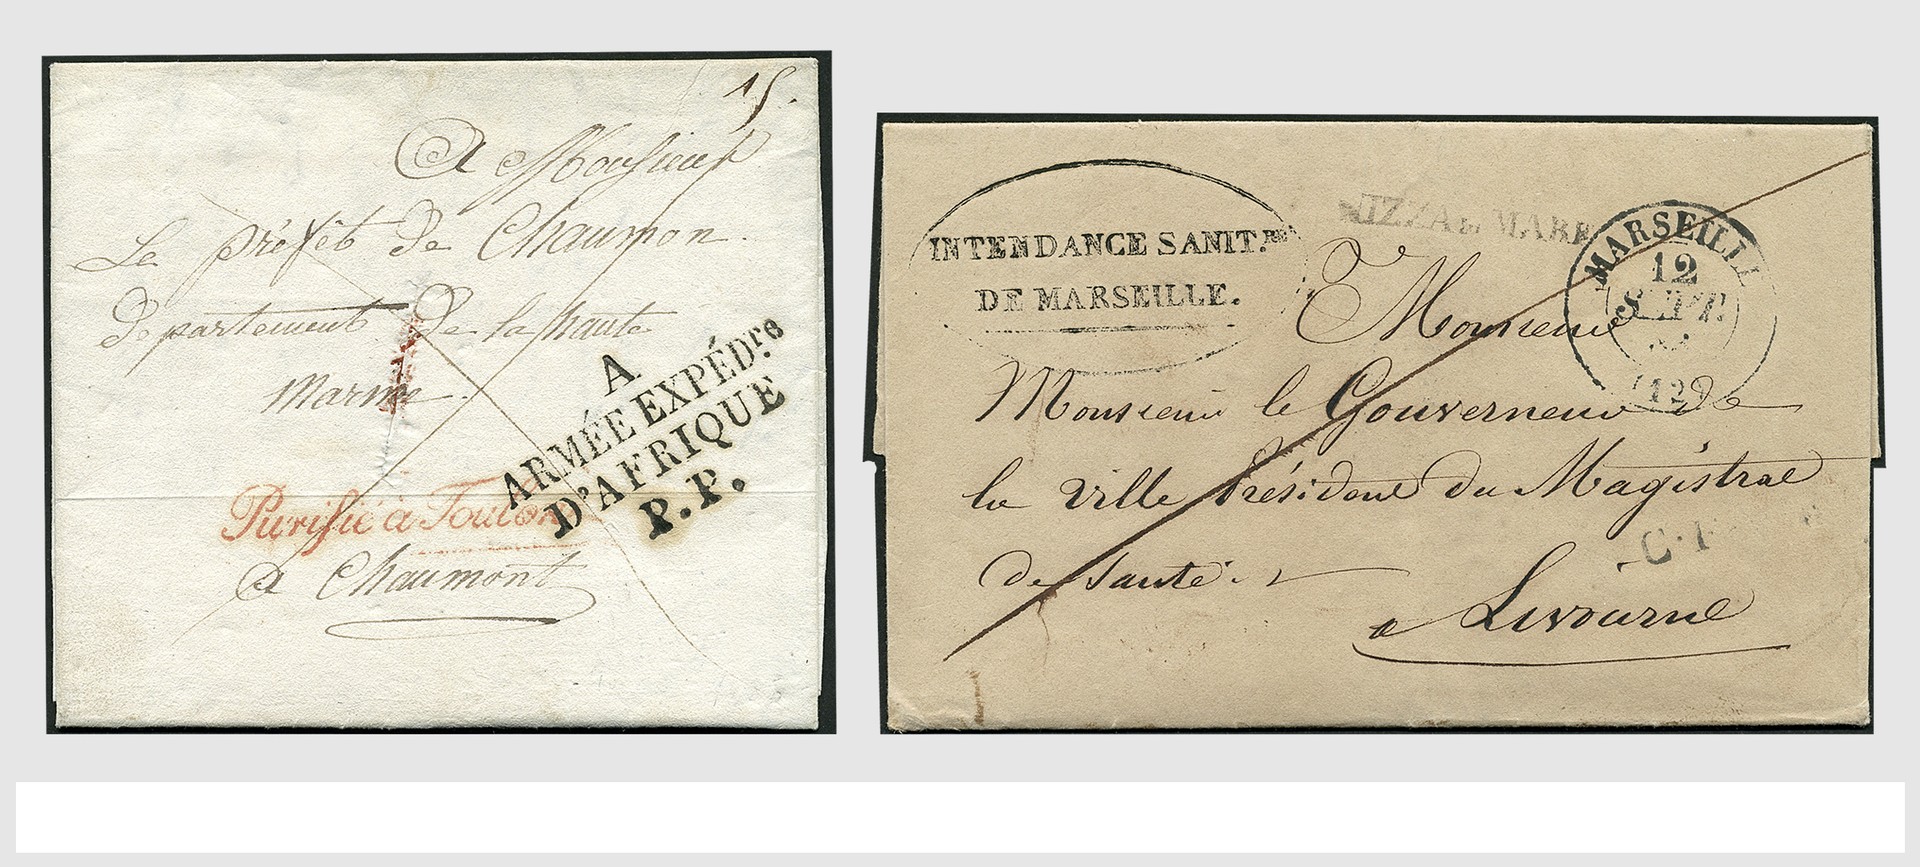 15.
A Monsieur
Le préfet de Chaumon
departement de la haute
marne.
A
ARMÉE EXPÉDre
D'AFRIQUE
P.P.
Purifié à Toulon
a Chaumont
INTENDANCE SANIT.RE
DE MARSEILLE.
NIZZA MARE
MARSEILLE
12
SEPT.
(12)
Monsieur
Monsieur le Gouverneur de
la Ville Président du Magistral
de Santé.
C.F
a Livourne